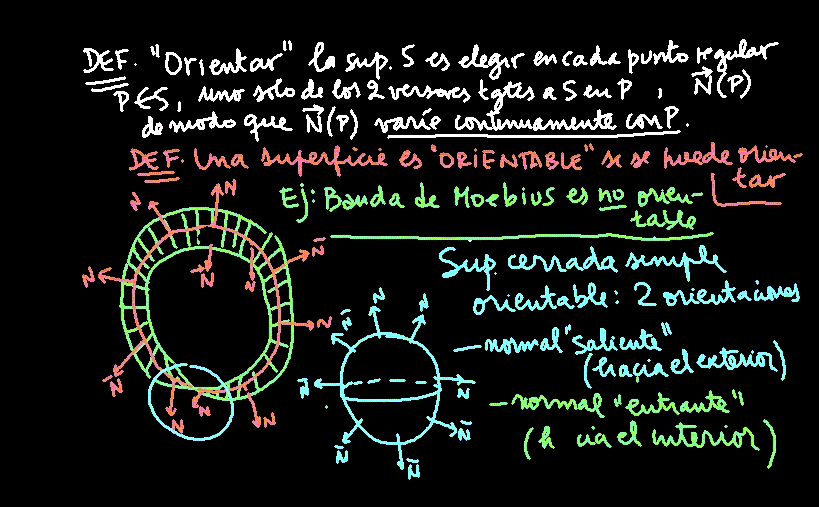 DEF. "Orientar" la sup. S es elegir en cada punto regular
P ∈ S, uno solo de los 2 versores tgtes a S en P , N⃗(P)
de modo que N⃗(P) varíe continuamente con P.
DEF. Una superficie es "ORIENTABLE" si se puede orien-
tar
Ej: Banda de Moebius es no orien-
table
Sup. cerrada simple
orientable: 2 orientaciones
— normal "saliente"
(hacia el exterior)
— normal "entrante"
(h cia el interior)
N
N
N̄
N
N
N
N
N
N̄
N
N
N
N̄
N
N
N̄
N
N̄
N̄
N̄